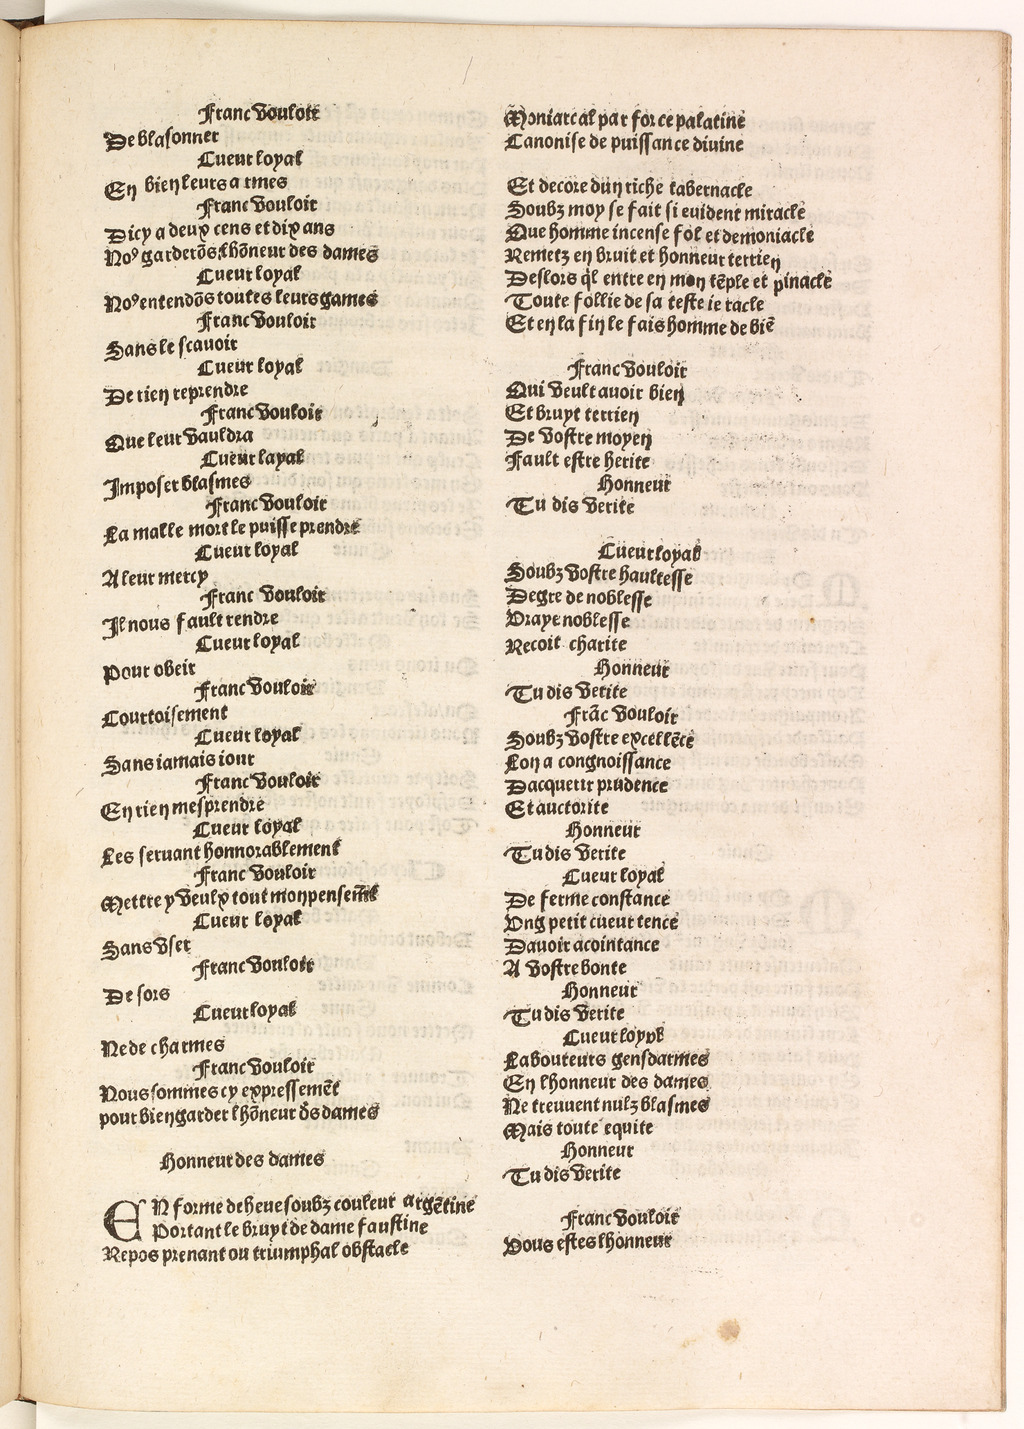 Franc vouloir
De blasonner
Cueur loyal
En bien leurs armes
Franc vouloir
Dicy a deux cens et dix ans
Noꝰ garderõs lhõneur des dames
Cueur loyal
Noꝰ entendõs toutes leurs games
Franc vouloir
Sans le scavoir
Cueur loyal
De rien reprendre
Franc vouloir
Que leur vauldra
Cueur layal
Imposer blasmes
Franc vouloir
La malle mort le puisse prendre
Cueur loyal
A leur mercy
Franc vouloir
Il nous fault rendre
Cueur loyal
Pour obeir
Franc vouloir
Courtoisement
Cueur loyal
Sans iamais iour
Franc vouloir
En rien mesprendre
Cueur loyal
Les servant honnorablement
Franc vouloir
Mettre y veulx tout mon pensemẽt
Cueur loyal
Sans vser
Franc vouloir
De sors
Cueur loyal
Ne de charmes
Franc vouloir
Nous sommes cy expressemẽt
pour bien garder lhõneur ds dames
Honneur des dames
EN forme deheue soubz couleur argẽtine
Portant le bruyt de dame faustine
Repos prenant ou triumphal obstacle
Moniarcal par force palatine
Canonise de puissance divine
Et decore dun riche tabernacle
Soubz moy se fait si evident miracle
Que homme incense fol et demoniacle
Remetz en bruit et honneur terrien
Deslors ql entre en mon tẽple et pinacle
Toute follie de sa teste ie racle
Et en la fin le fais homme de biẽ
Franc vouloir
Qui veult avoir bien
Et bruyt terrien
De vostre moyen
Fault estre herite
Honneur
Tu dis verite
Cueur loyal
Soubz vostre haultesse
Degre de noblesse
Vraye noblesse
Recoit charite
Honneur
Tu dis verite
Frãc vouloir
Soubz vostre excellẽce
Lon a congnoissance
Dacquerir prudence
Et auctorite
Honneur
Tu dis verite
Cueur loyal
De ferme constance
Ung petit cueur tence
Davoir acointance
A vostre bonte
Honneur
Tu dis verite
Cueur loyal
Labouteurs gensdarmes
En lhonneur des dames
Ne treuvent nulz blasmes
Mais toute equite
Honneur
Tu dis verite
Franc vouloir
Vous estes lhonneur